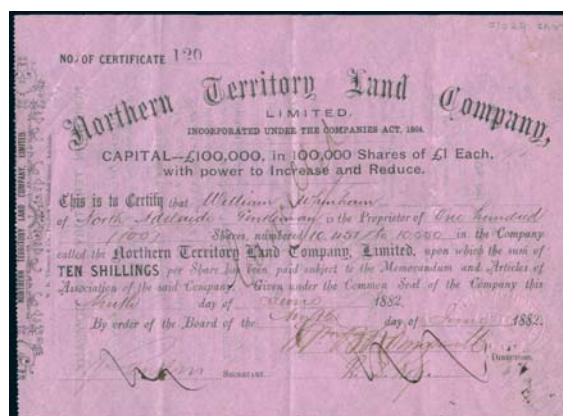 NO. OF CERTIFICATE 120
Northern Territory Land Company,
LIMITED.
INCORPORATED UNDER THE COMPANIES ACT, 1864.
CAPITAL—£100,000, in 100,000 Shares of £1 Each,
with power to Increase and Reduce.
This is to Certify that William Whinham
of North Adelaide Gentleman is the Proprietor of One hundred
(100) Shares, numbered to in the Company
called the Northern Territory Land Company, Limited, upon which the sum of
TEN SHILLINGS per Share has been paid subject to the Memorandum and Articles of
Association of the said Company. Given under the Common Seal of the Company this
Ninth day of June 1882.
By order of the Board of the Ninth day of June 1882.
Directors.
Secretary.
NORTHERN TERRITORY LAND COMPANY, LIMITED.